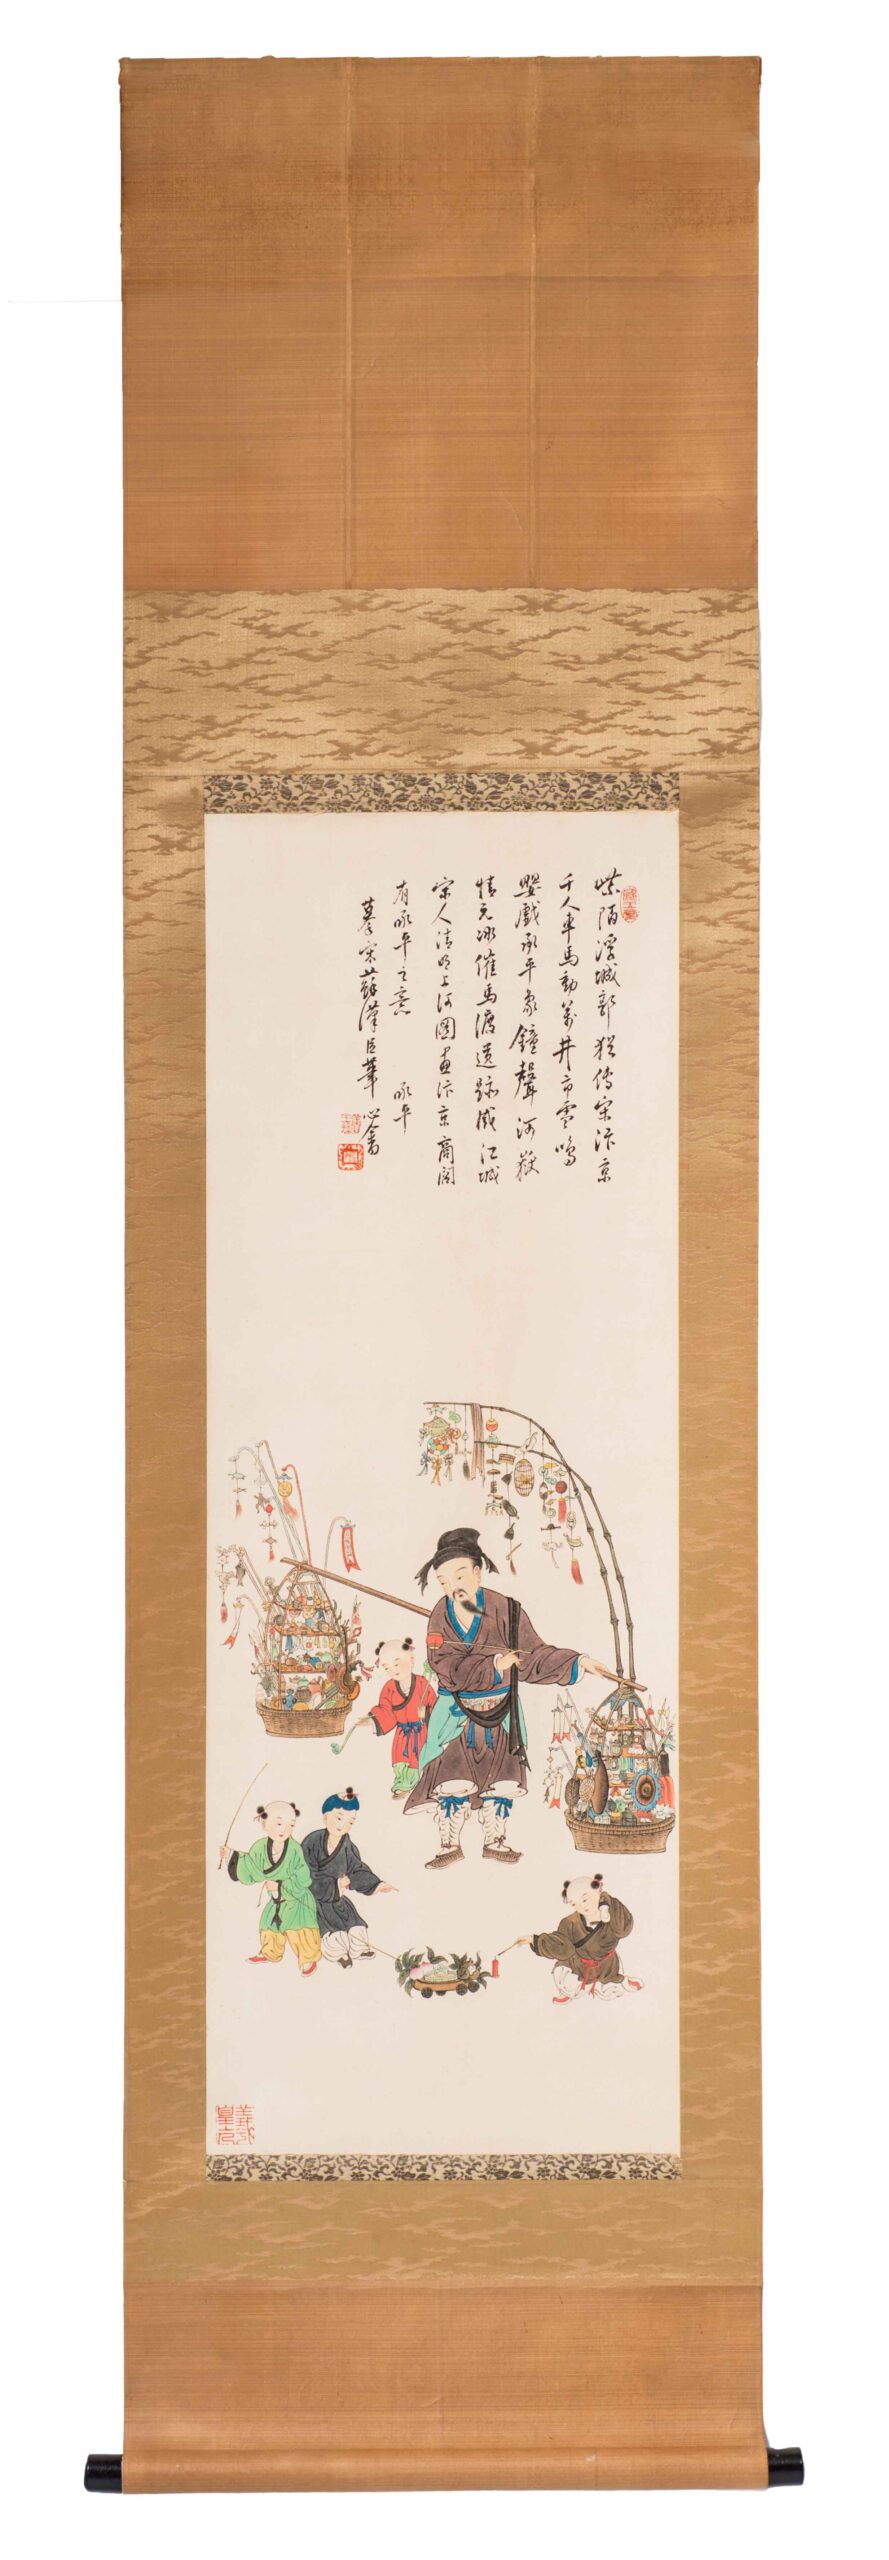 紫陌浮城郭猶傳宋汴京
千人車馬動萬井市鳴
嬰戲承平象鐘聲河嶽
情冰催馬渡遺跡江城
宋人清明上河圖畫汴京商
有承平之意 承平
摹宋蘇漢臣筆 心畬